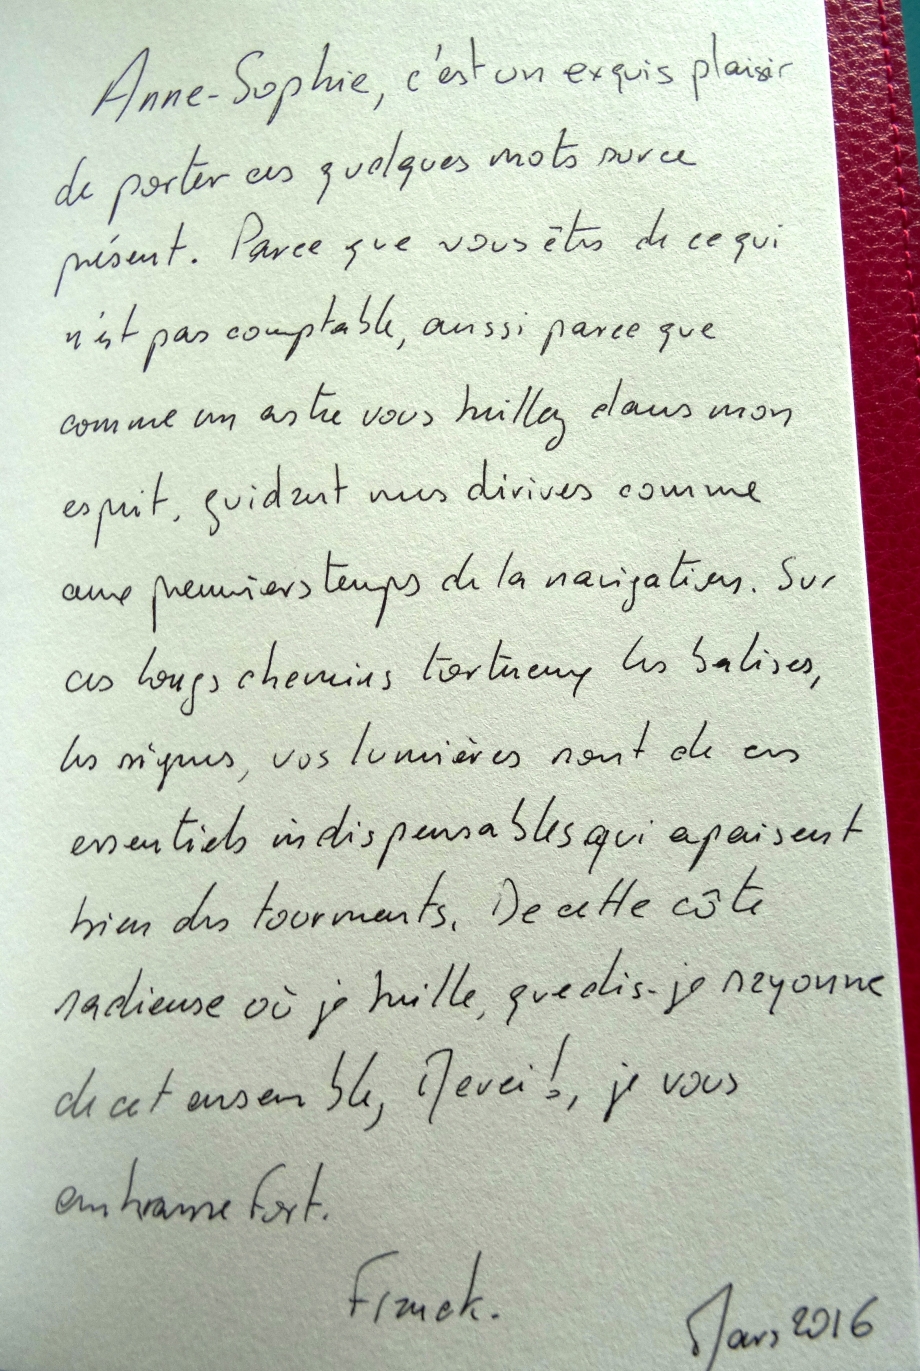 Anne-Sophie, c'est un exquis plaisir
de porter ces quelques mots sur ce
présent. Parce que vous êtes de ce qui
n'est pas comptable, aussi parce que
comme un astre vous brillez dans mon
esprit, guidant mes dérives comme
aux premiers temps de la navigation. Sur
ces longs chemins tortueux les balises,
les signes, vos lumières sont de ces
essentiels indispensables qui apaisent
bien des tourments. De cette côte
radieuse où je brille, que dis-je rayonne
de cet ensemble, Merci !, je vous
embrasse fort.
Franck.
Mars 2016